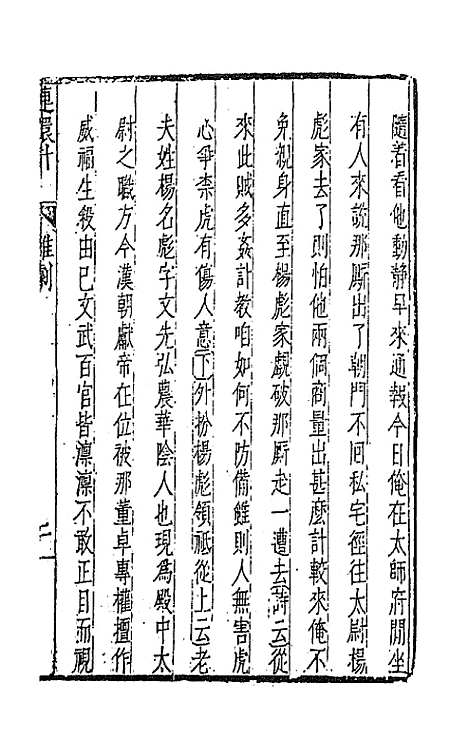 隨着看他動静早來通報今日俺在太師府閒坐
有人來説那厮出了朝門不囘私宅徑往太尉楊
彪家去了則怕他兩個商量出甚麼計較來俺不
免親身直至楊彪家覷破那厮走一遭去詩云從
來此賊多姦計教咱如何不防備雖則人無害虎
心爭柰虎有傷人意下外扮楊彪領祗從上云老
夫姓楊名彪字文先弘農華陰人也現爲殿中太
尉之職方今漢朝獻帝在位被那董卓專權擅作
威福生殺由己文武百官皆凛凛不敢正目而視
連環計 雜劇